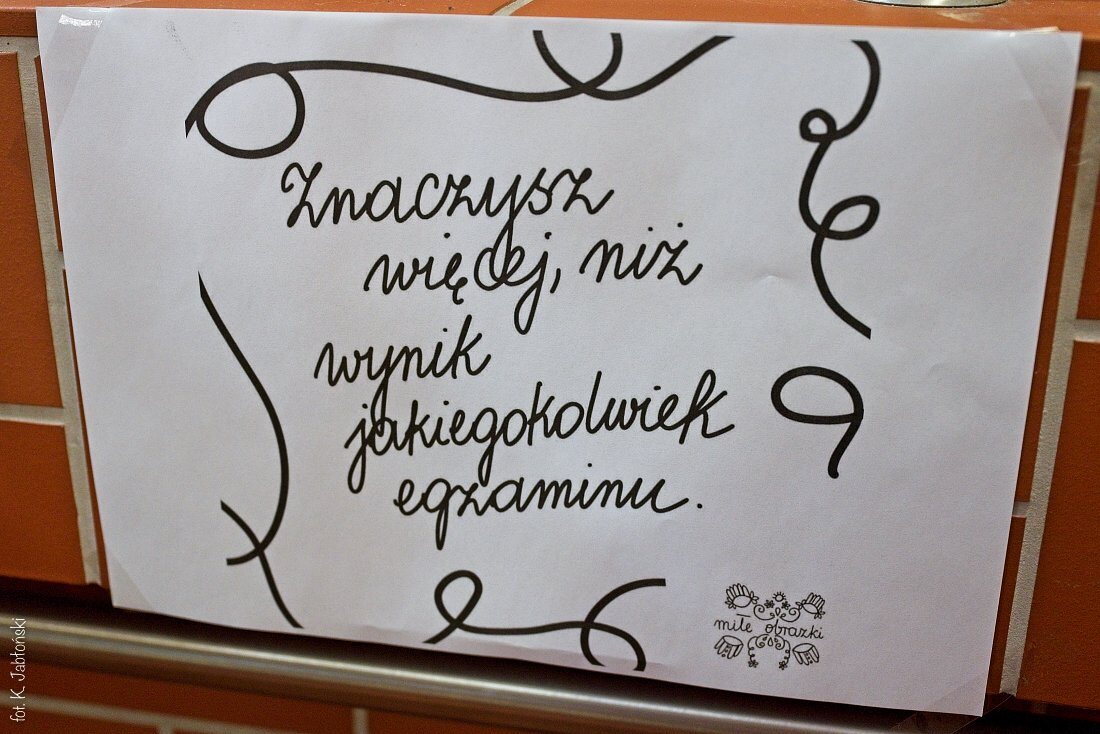 Znaczysz
więcej, niż
wynik
jakiegokolwiek
egzaminu.
miłe obrazki
fot. K. Jabłoński